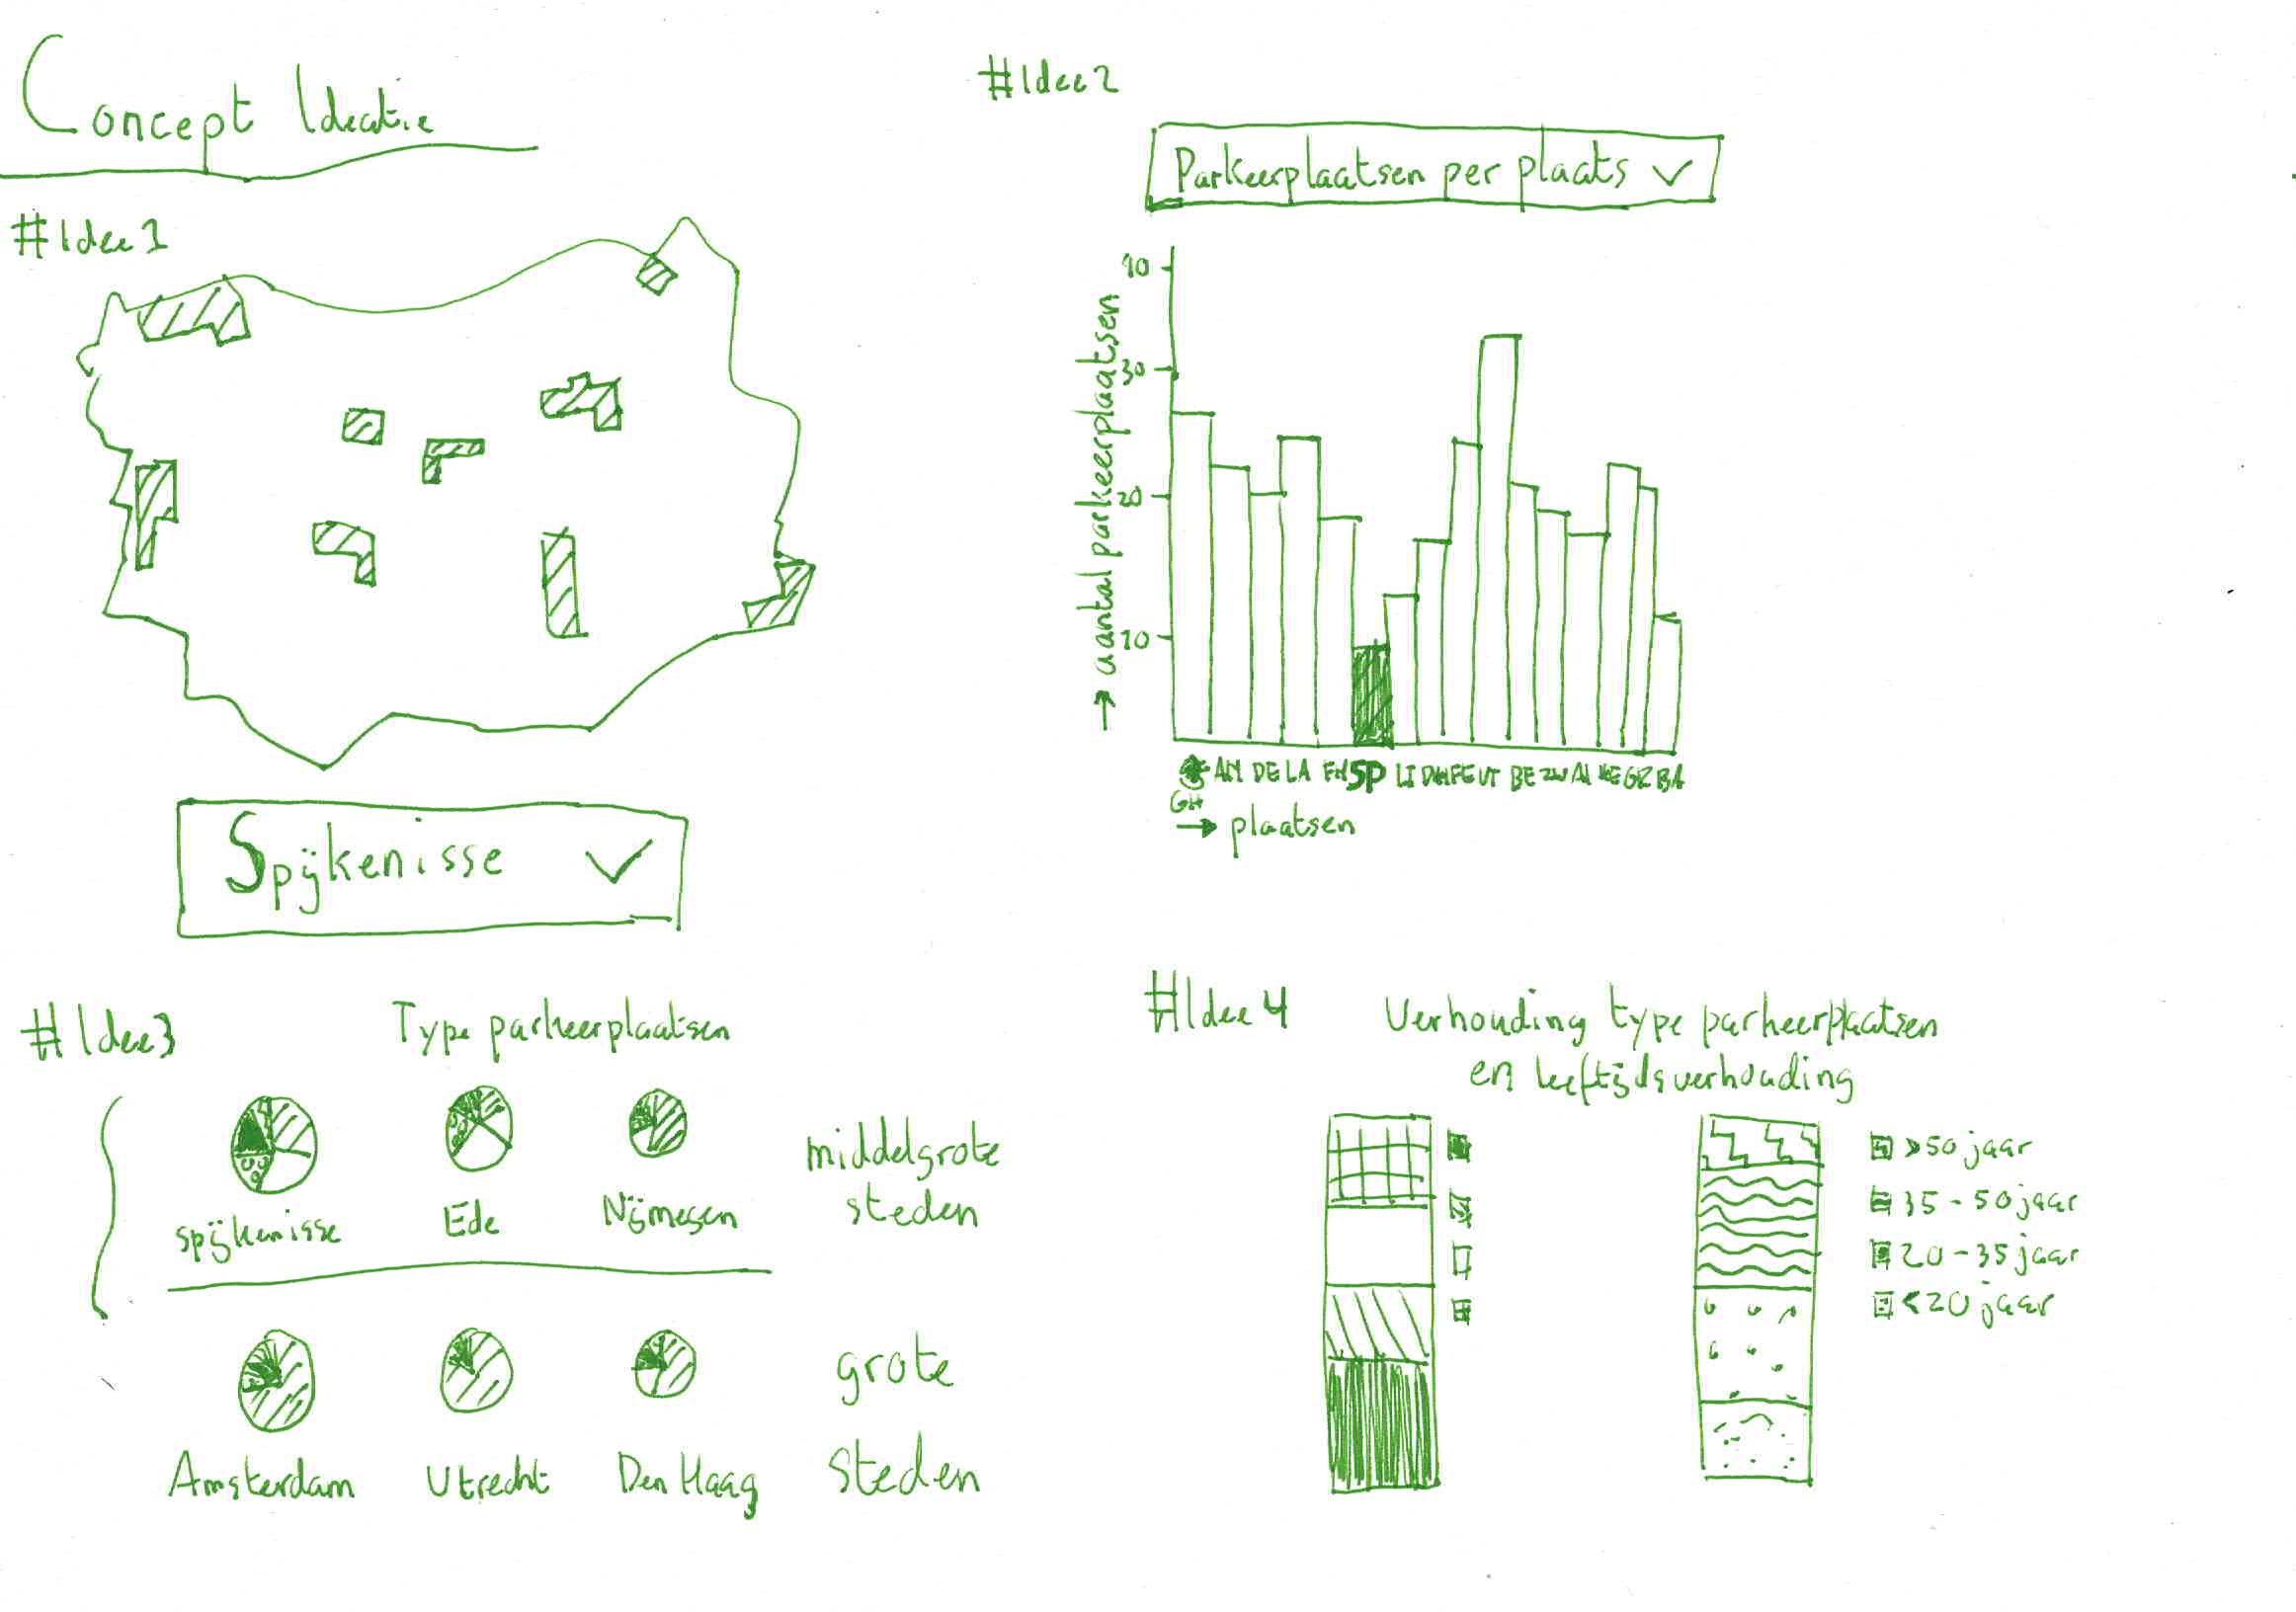 Concept Ideatie
#Idee1
Spijkenisse
#Idee2
Parkeerplaatsen per plaats
→ aantal parkeerplaatsen
40
30
20
10
AM DE LA EH SP LI DH FE UT BE ZW AI GR BA
GH
→ plaatsen
#Idee3
Type parkeerplaatsen
spijkenisse
Ede
Nijmegen
middelgrote
steden
Amsterdam
Utrecht
Den Haag
grote
steden
#Idee4
Verhouding type parkeerplaatsen
en leeftijdsverhouding
>50 jaar
35-50 jaar
20-35 jaar
<20 jaar